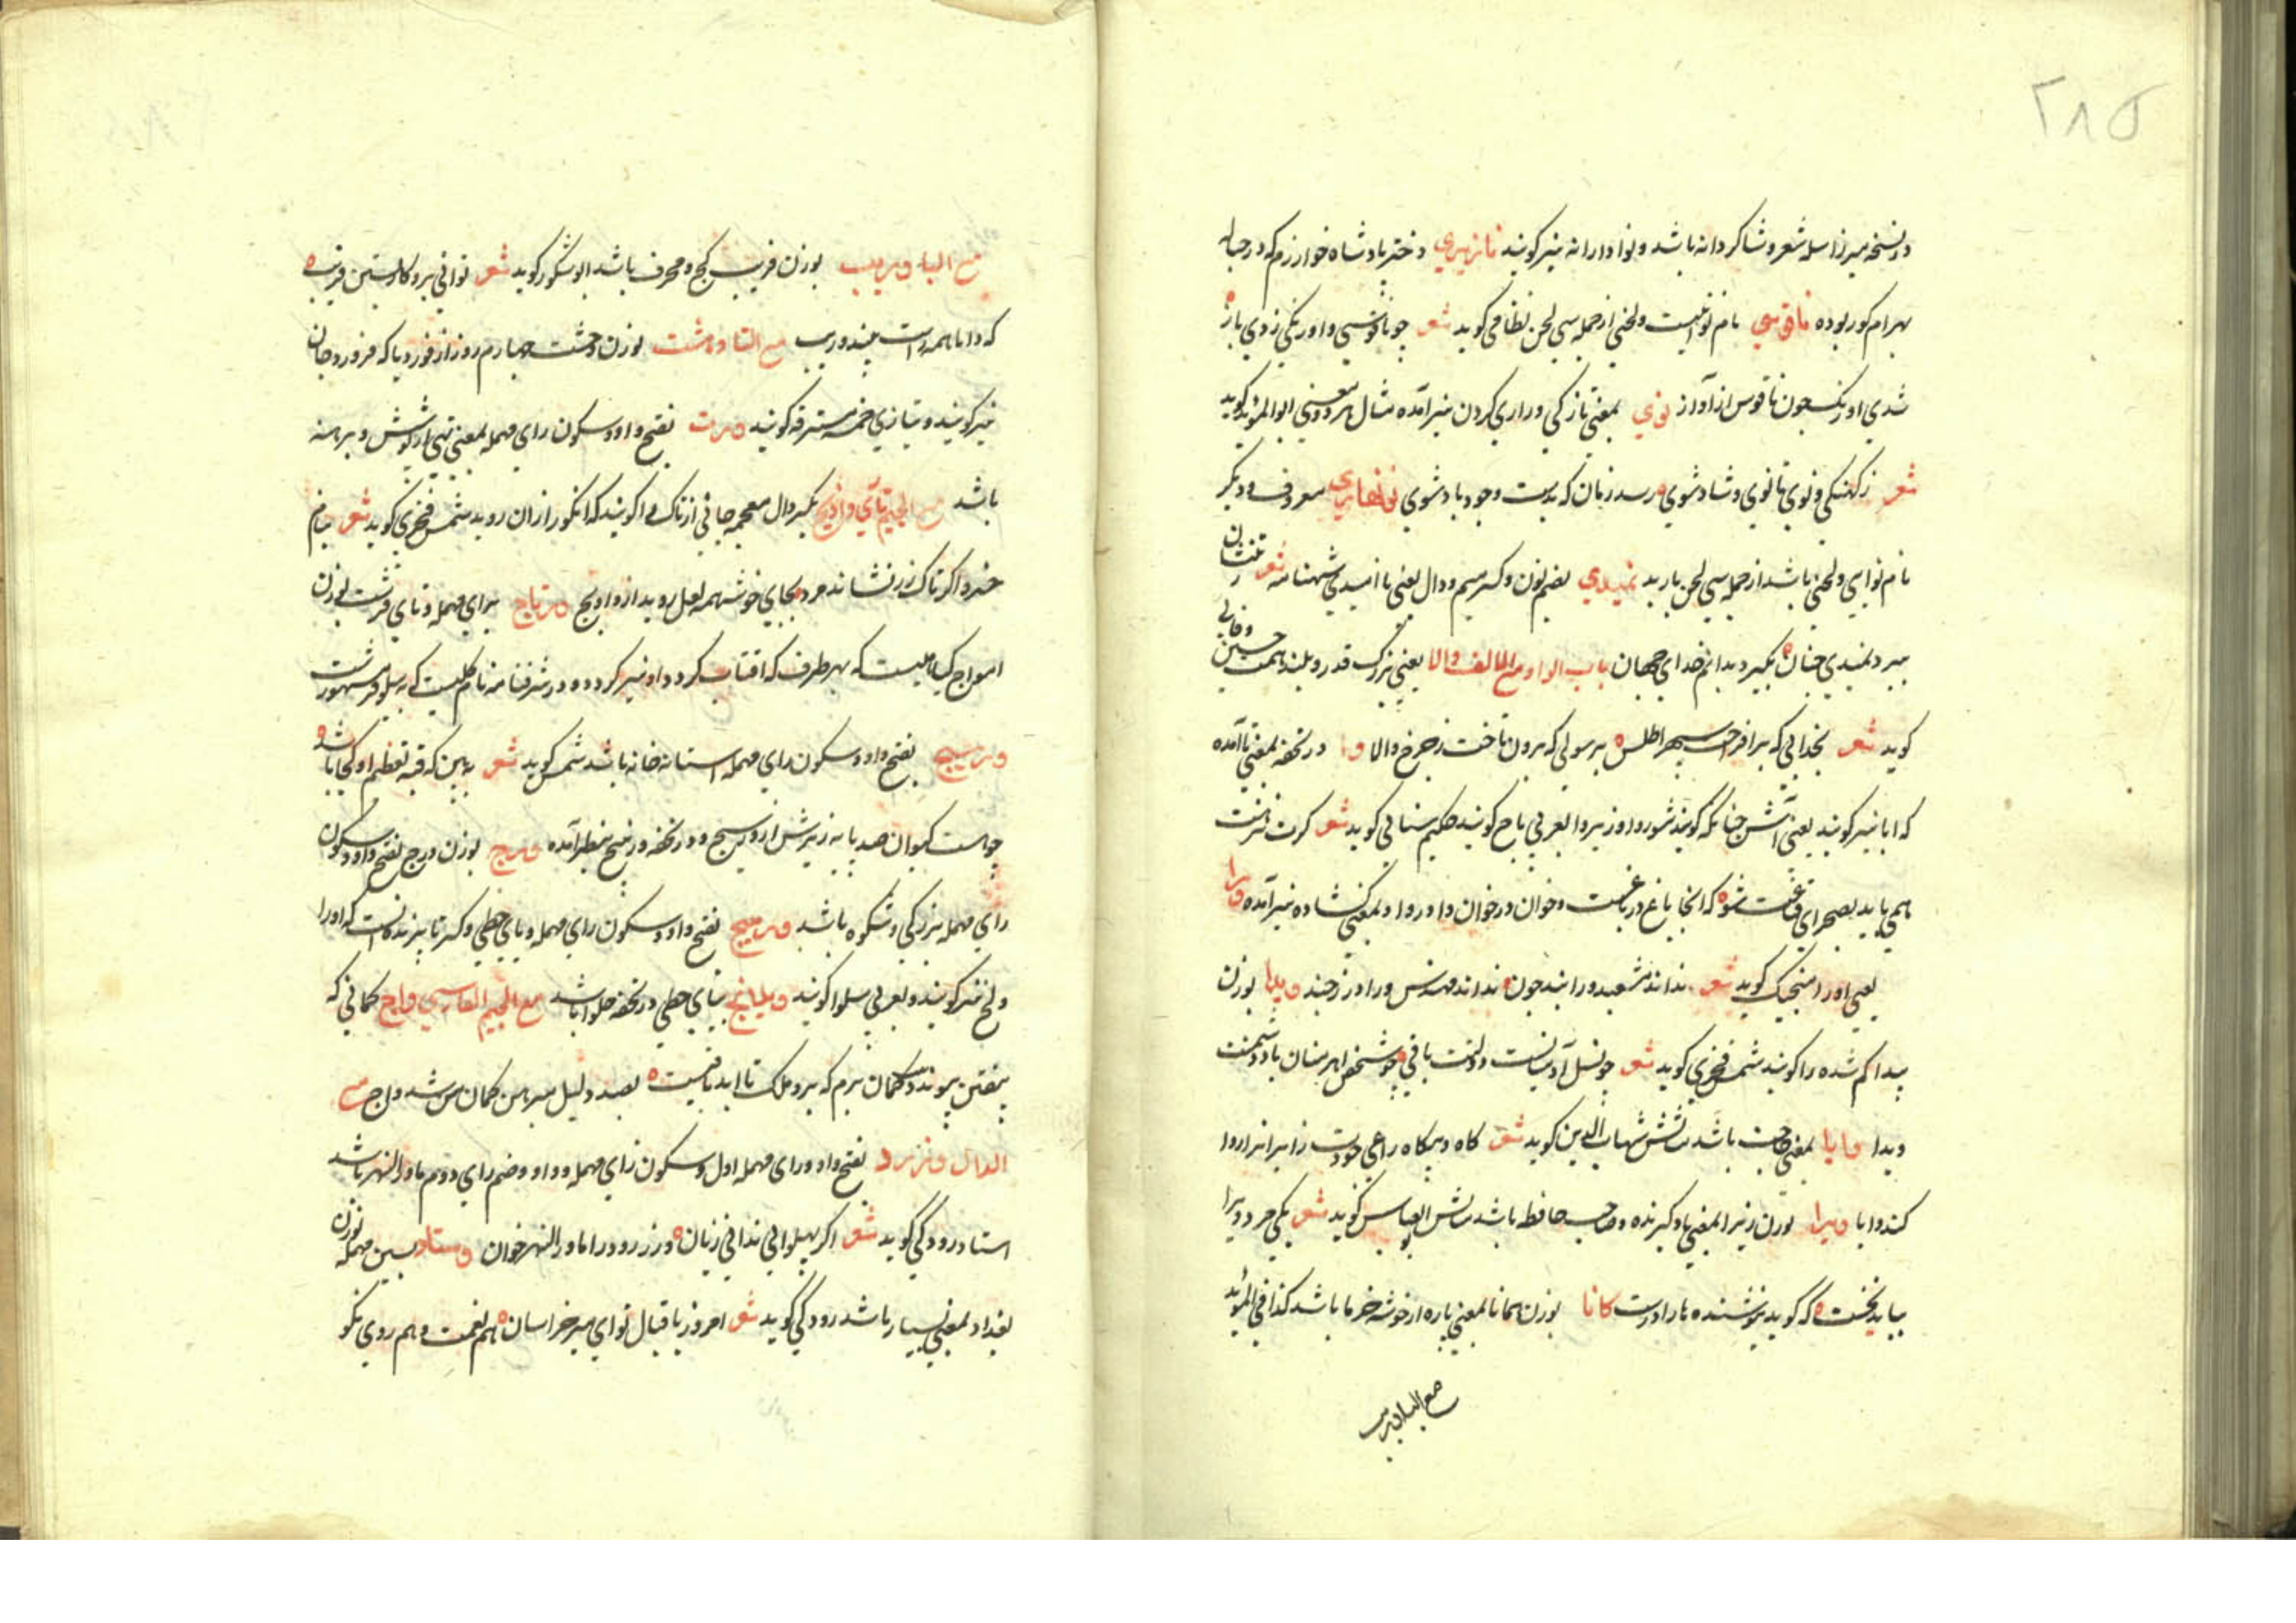 ۲۸۵
در نسخه میرزا سله شعر و شاکردانه باشد و نوا داران نیز کویند نازپری دختر پادشاه خوارزم که در حباله
بهرام کور بوده ناقوسی نام نواییست و لحنی از جمله سی لحن نظامی کوید شعر چو ناقوسی و اورنکی زدی باز
شدی اورنک چون ناقوس از آواز نوی بمعنی تازکی و زاری کردن نیز آمده مثال هر دو معنی ابوالموید کوید
شعر ز کهنکی و نوی تا نوی و شاد شوی رسد زبان که بدست وجود باد شوی نوبهاری معروف و دیکر
نام نوایی و لحنی باشد از جمله سی لحن باربد نمیدی بضم نون و کسر میم و دال یعنی ناامیدی شهنامه شعر
ببرد نمیدی چنان بکیرد بدانم خدای جهان باب الواو مع الالف والا یعنی بزرک قدر و بلند همت حسین وفایی
کوید شعر بخدایی که برافراخت سپهر اطلس برسولی که برون تاخت ز چرخ والا وا در تحفه بمعنی باآمده
که ابا نیز کویند یعنی آش چنانکه کویند شوروا و زیروا بعربی باج کویند حکیم سنایی کوید شعر کرت نزهت
همی باید بصحرای قناعت شو که آنجا باغ در باغست و خوان در خوان و وا در وا و بمعنی کشاده نیز آمده ورا
یعنی او را منجیک کوید شعر نداند مشعبد ورا بند چون نداند مهندس ورا درز چند ویدا بوزن
پیدا کم شده را کویند شمس فخری کوید شعر چو نسل آدمیانست دولتت باقی چو شخص اهرمنان باد دشمنت
ویدا وایا بمعنی حاجت باشد شهاب الدین کوید شعر کاه و بیکاه راعی جودت زایرانرا روا
کند وایا ویرا بوزن زیرا بمعنی یادکیرنده و صاحب حافظه باشد ابوالعباس کوید شعر یکی حر د ویرا
بباید نخست که کوید نیوشنده ما را درست کانا بوزن همانا بمعنی پاره از خوشه خرما باشد کذا فی الموید
مع الباء وریب
مع الباء وریب بوزن فریب کج و محرف باشد ابوشکور کوید شعر توانی برو کار بستن فریب
که دانا همه راست بیند وریب مع التا وهشت بوزن دهشت چهارم روز از فوردیا که فروردجان
نیز کویند و بتازی خمسه مسترقه کویند ورت بفتح واو و سکون رای مهمله بمعنی تهی از پوشش و برهنه
باشد مع الجیم تازی واذیج بکسر دال معجمه جائی از تاک را کویند که انکور از ان روید شمس فخری کوید شعر بنام
خسرو اکر تاک رز نشاند مرد بجای خوشه همه لعل روید از واذیج ورتاج برای مهمله و تای قرشت بوزن
امواج کیاهیست که بهر طرف که افتاب کردد او نیز کردد و در شرفنامه نام کلیست که به نیلوفر مشهورست
وریج بفتح واو و سکون رای مهمله استانه خانه باشد شمس کوید شعر ببین که قبه تعظیم او کجا باشد
چو هست کیوان صد پایه زیرش از وریج و در تحفه ورسیج بنظر آمده ورج بوزن درج بفتح واو و سکون
رای مهمله بزرکی و شکوه باشد ورتیج بفتح واو و سکون رای مهمله و یای حطی و کسر تا پرنده است که او را
ولج نیز کویند و بعربی سلوا کویند ویلانج بیای حطی در تحفه حلوا باشد مع الجیم الفارسی واچ کمانی که
بیقین پیوندد کمان برم که برو ملک تا ابد باقیست بصد دلیل مبرهن کمان من شد واچ مع
الدال ورزرود بفتح واو و رای مهمله اول و سکون زای مهمله و واو و ضم رای دوم ماوراالنهر باشد
استاد رودکی کوید شعر اکر پهلوانی ندانی زبان ورزرود را ماورالنهر خوان وستاد بسین مهمله بوزن
بغداد بمعنی بسیار باشد رودکی کوید شعر امروز باقبال تو ای میر خراسان هم نعمت و هم روی نکو